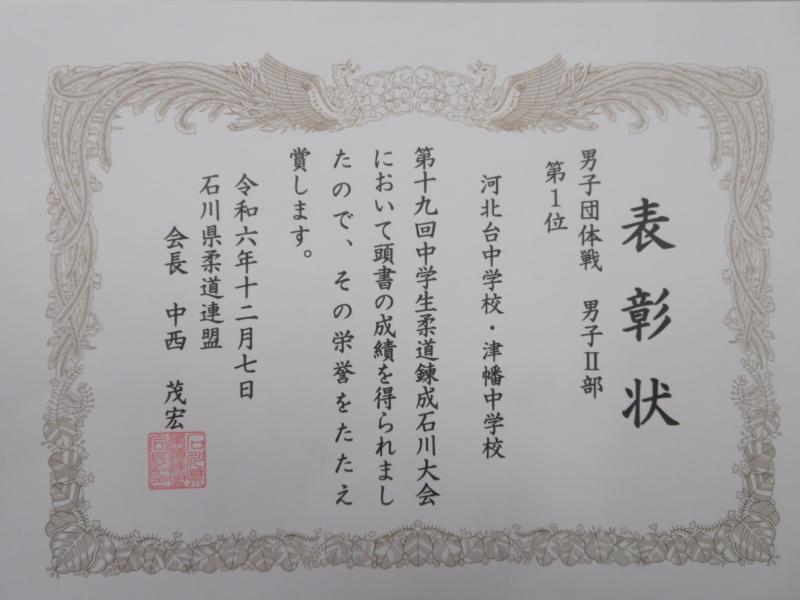 表彰状
男子団体戦　男子Ⅱ部
第１位
河北台中学校・津幡中学校
第十九回中学生柔道錬成石川大会
において頭書の成績を得られまし
たので、その栄誉をたたえ
賞します。
令和六年十二月七日
石川県柔道連盟
会長　中西　茂宏